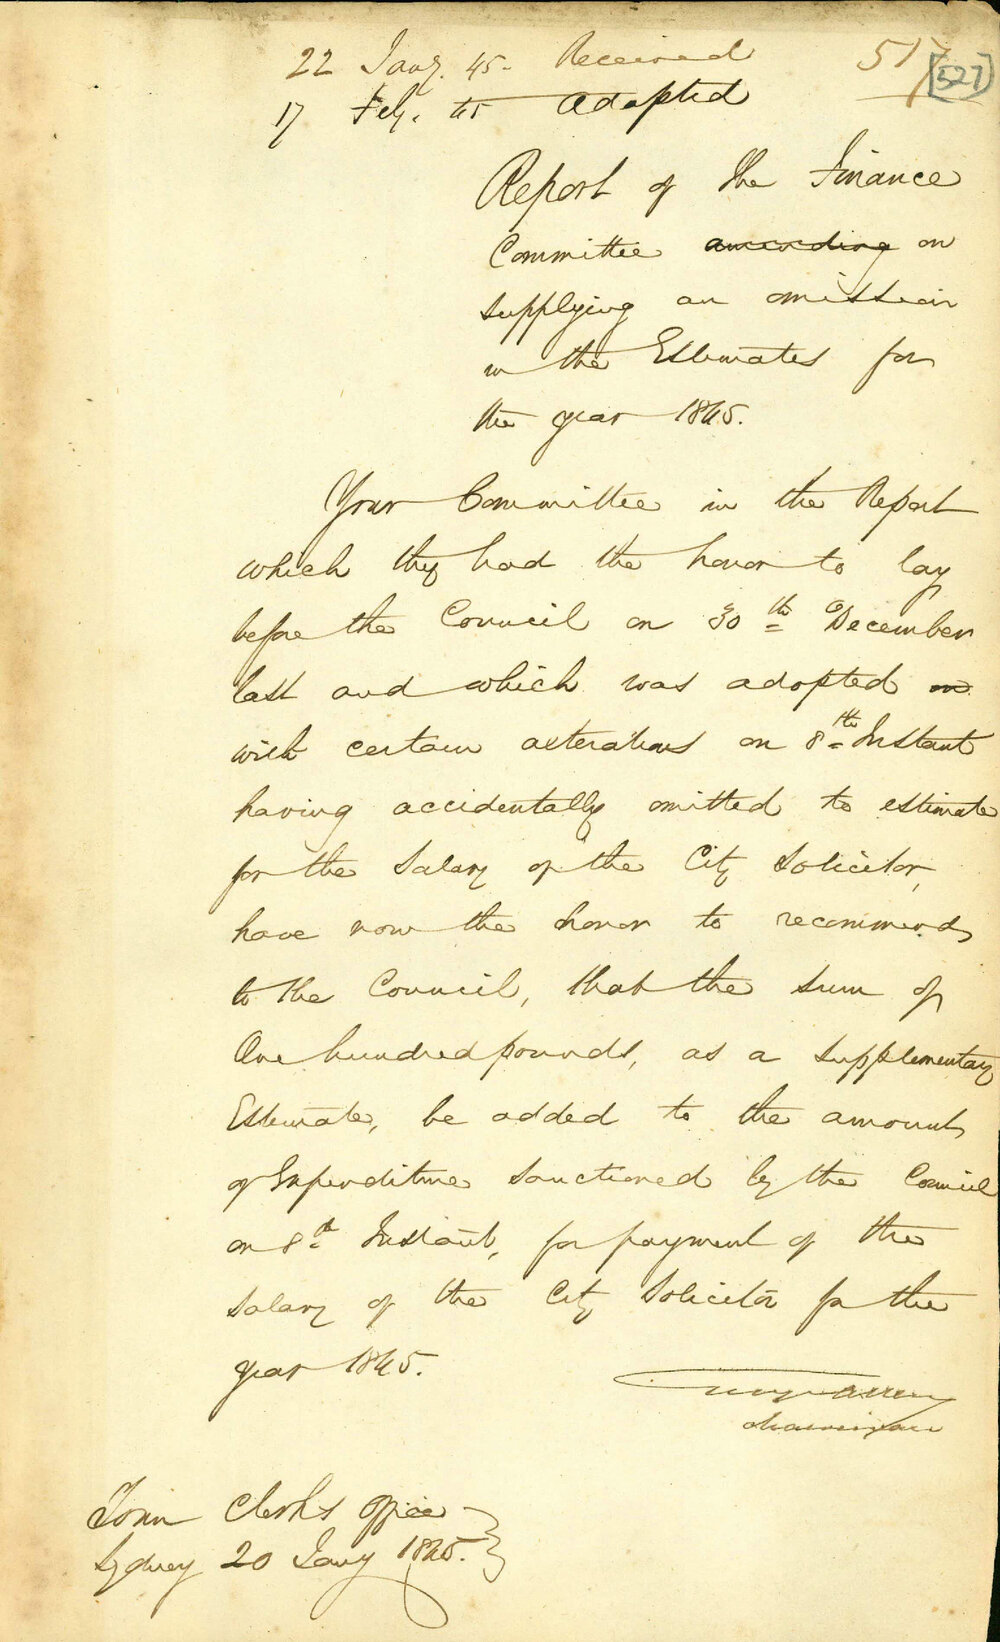 22 Jany. 45. Received 517
[527]
17 Feby. 45 Adopted
Report of the Finance
Committee amending on
supplying an omission
in the Estimates for
the year 1845.
Your Committee in the Report
which they had the honor to lay
before the Council on 30th December
last and which was adopted on
with certain alterations on 8th Instant
having accidentally omitted to estimate
for the Salary of the City Solicitor,
have now the honor to recommend
to the Council, that the sum of
One hundred pounds, as a supplementary
Estimate, be added to the amount
of Expenditure sanctioned by the Council
on 8th Instant, for payment of the
salary of the City Solicitor for the
year 1845.
Chairman
Town Clerk's Office
Sydney 20 Jany 1845.